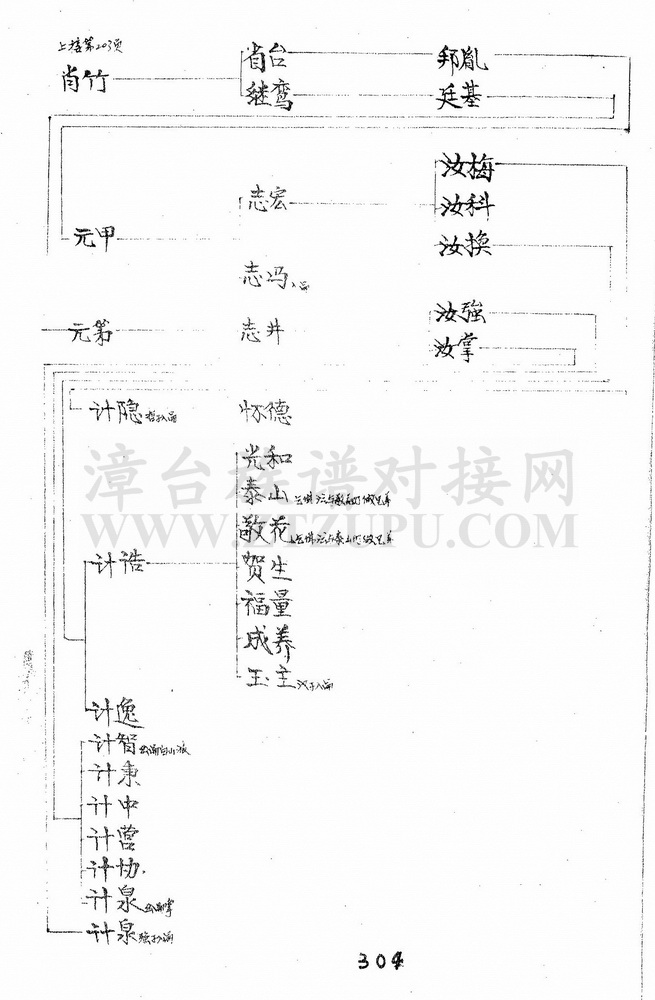 上接第203页
肖竹 省台 邦胤
继鸾 廷基
汝梅
志宏 汝科
元甲 汝换
志冯
汝強
元第 志井
汝掌
计隐 怀德
光和
泰山
敬花
计诰 贺生
福量
成养
玉主
计逸
计智
计秉
计中
计营
计协
计泉
计泉
304
漳台族谱对接网
WWW.ZTZUPU.COM